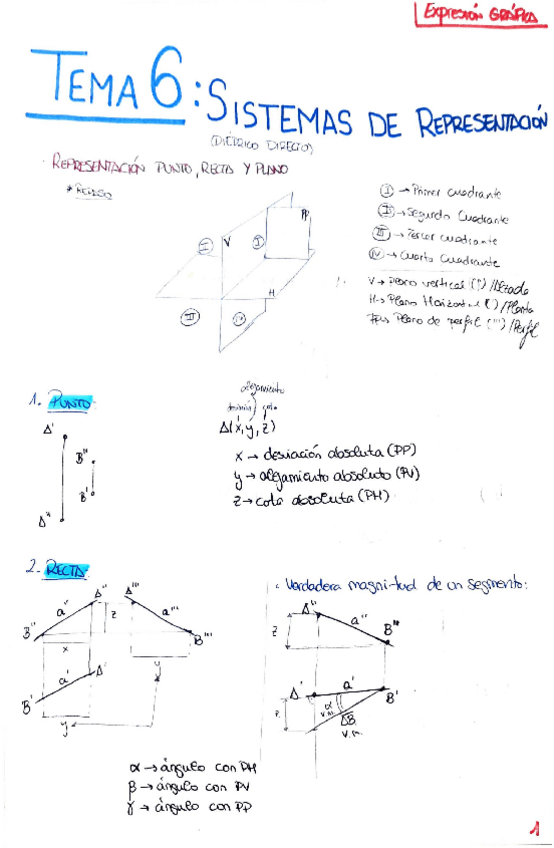 Expresión GRÁFICA
TEMA 6: SISTEMAS DE REPRESENTACIÓN
(DIÉDRICO DIRECTO)
· REPRESENTACIÓN PUNTO, RECTA Y PLANO
* REPASO
I → Primer cuadrante
II → Segundo Cuadrante
III → Tercer cuadrante
IV → Cuarto Cuadrante
V → Plano vertical (") / Alzado
H → Plano Horizontal (') / Planta
PP → Plano de perfil (''') / Perfil
II
V
I
PP
H
III
IV
1. PUNTO:
alejamiento
desviación
cota
A(x, y, z)
x → desviación absoluta (PP)
y → alejamiento absoluto (PV)
z → cota absoluta (PH)
A'
B"
B'
A"
2. RECTA:
A"
A'''
a"
z
a'''
B"
B'''
x
A'
a'
y
B'
y
· Verdadera magnitud de un segmento:
A"
a"
z
B"
A'
a'
B'
α
V.M.
AB
V.M.
α → ángulo con PH
β → ángulo con PV
γ → ángulo con PP
1